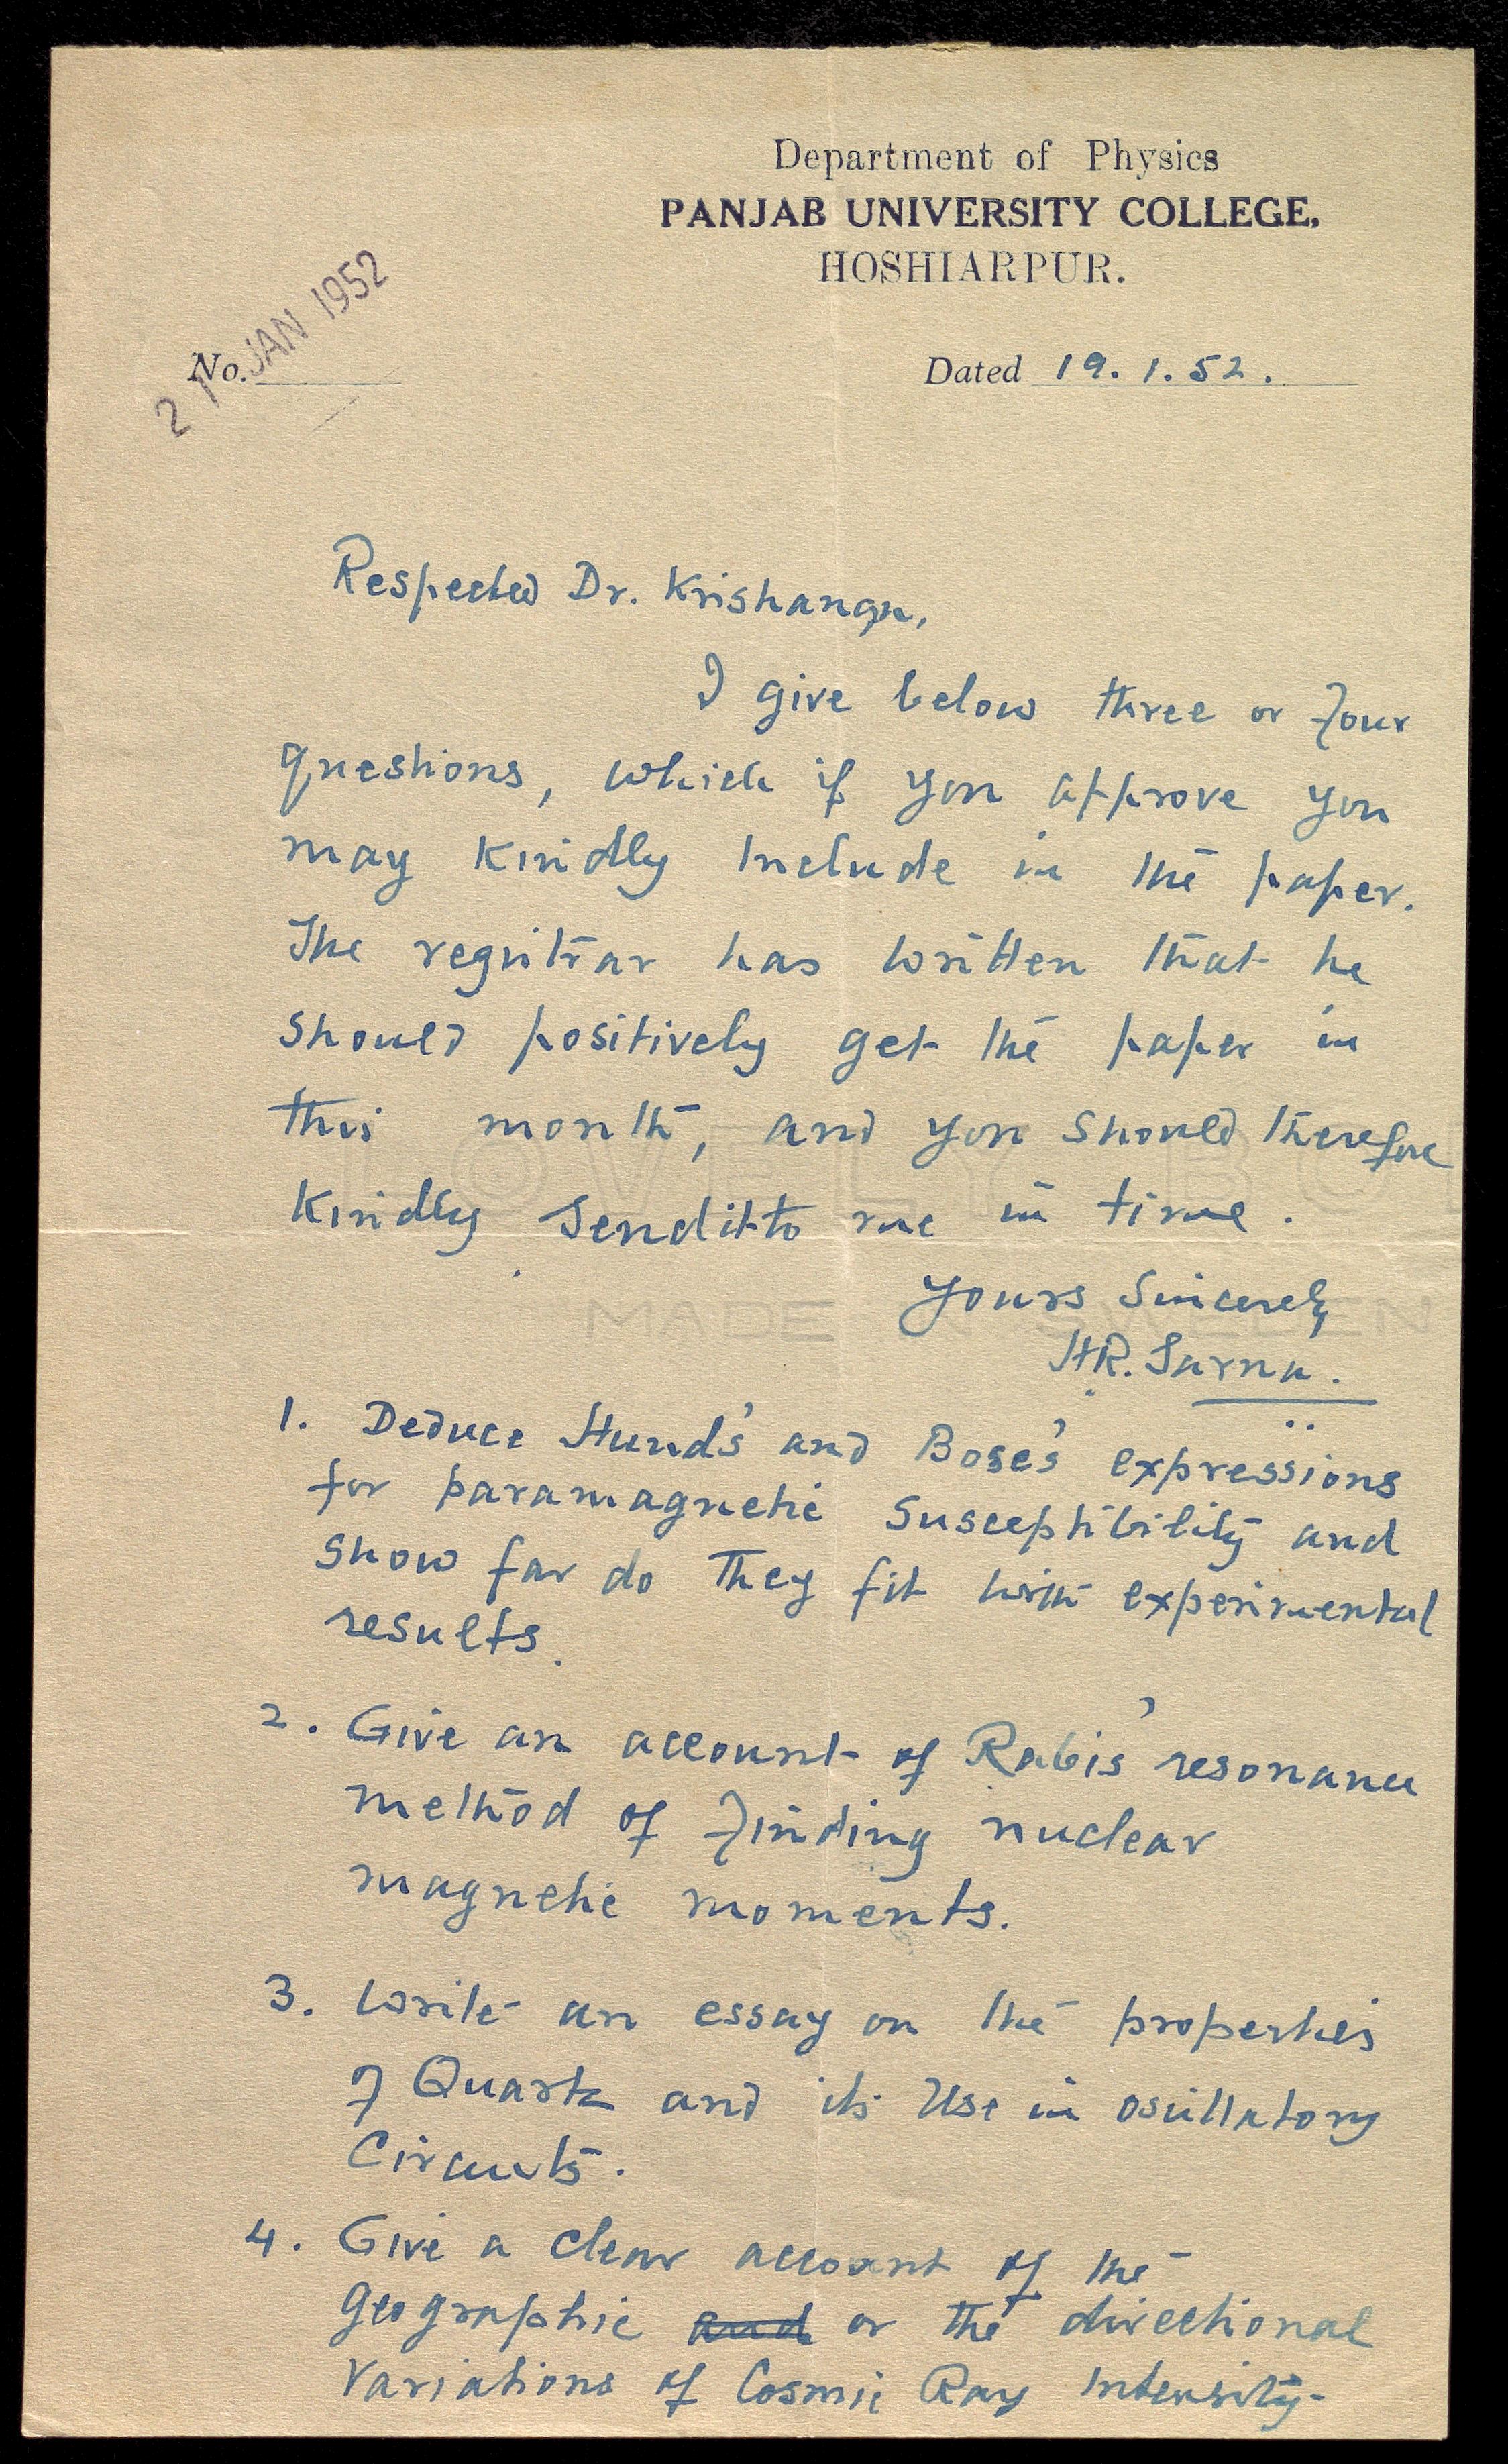 Department of Physics
PANJAB UNIVERSITY COLLEGE,
HOSHIARPUR.
21 JAN 1952
No.
Dated 19.1.52.
Respected Dr. Krishanan,
I give below three or four
questions, which if you approve you
may kindly include in the paper.
The registrar has written that he
should positively get the paper in
this month, and you should therefore
kindly send it to me in time.
LOVELY BO
Yours Sincerely
MADE IN SWEDEN
HR. Sarna.
1. Deduce Hund's and Bose's expressions
for paramagnetic susceptibility and
show far do they fit with experimental
results.
2. Give an account of Rabis' resonance
method of finding nuclear
magnetic moments.
3. Write an essay on the properties
of Quartz and its use in oscillatory
Circuits.
4. Give a clear account of the
geographic and or the directional
variations of Cosmic Ray intensity.